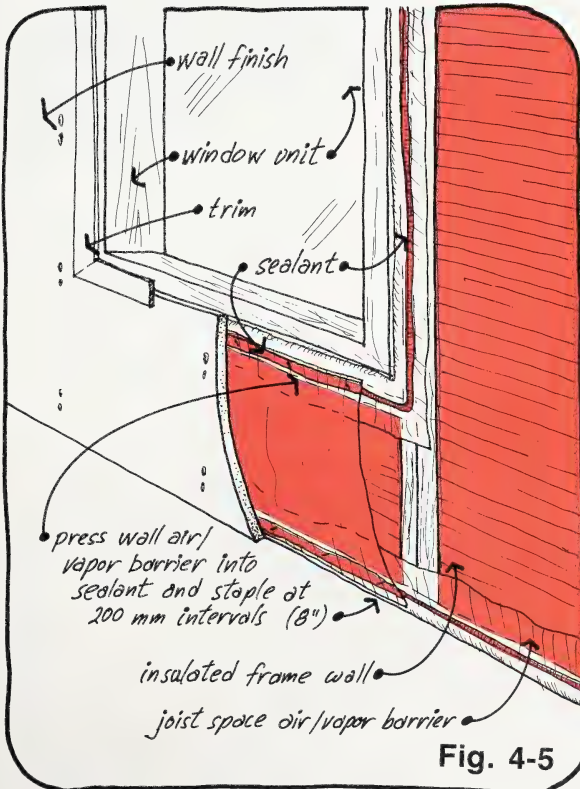 wall finish
window unit
trim
sealant
press wall air/
vapor barrier into
sealant and staple at
200 mm intervals (8")
insulated frame wall
joist space air/vapor barrier
Fig. 4-5